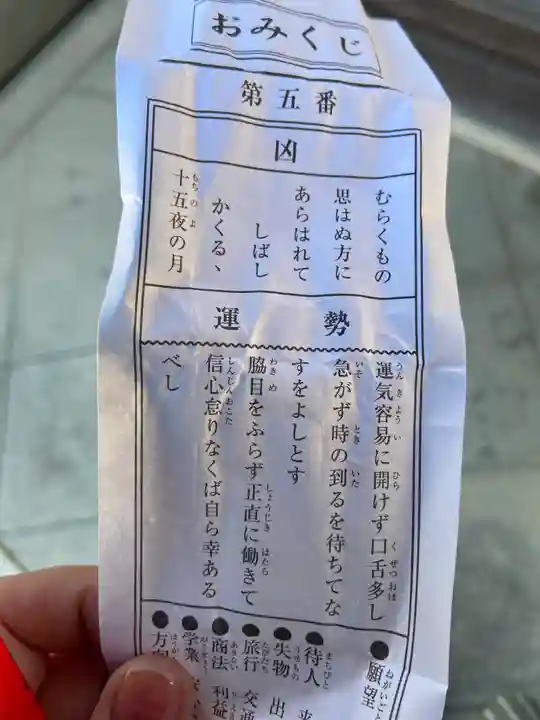 おみくじ
第五番
凶
むらくもの
思はぬ方に
あらはれて
しばし
かくる、
十五夜の月
運勢
運気容易に開けず口舌多し
急がず時の到るを待ちてな
すをよしとす
脇目をふらず正直に働きて
信心怠りなくば自ら幸ある
べし
●願望
●待人 来
●失物 出
●旅行 交通
●商法 利益
●学業
●方向